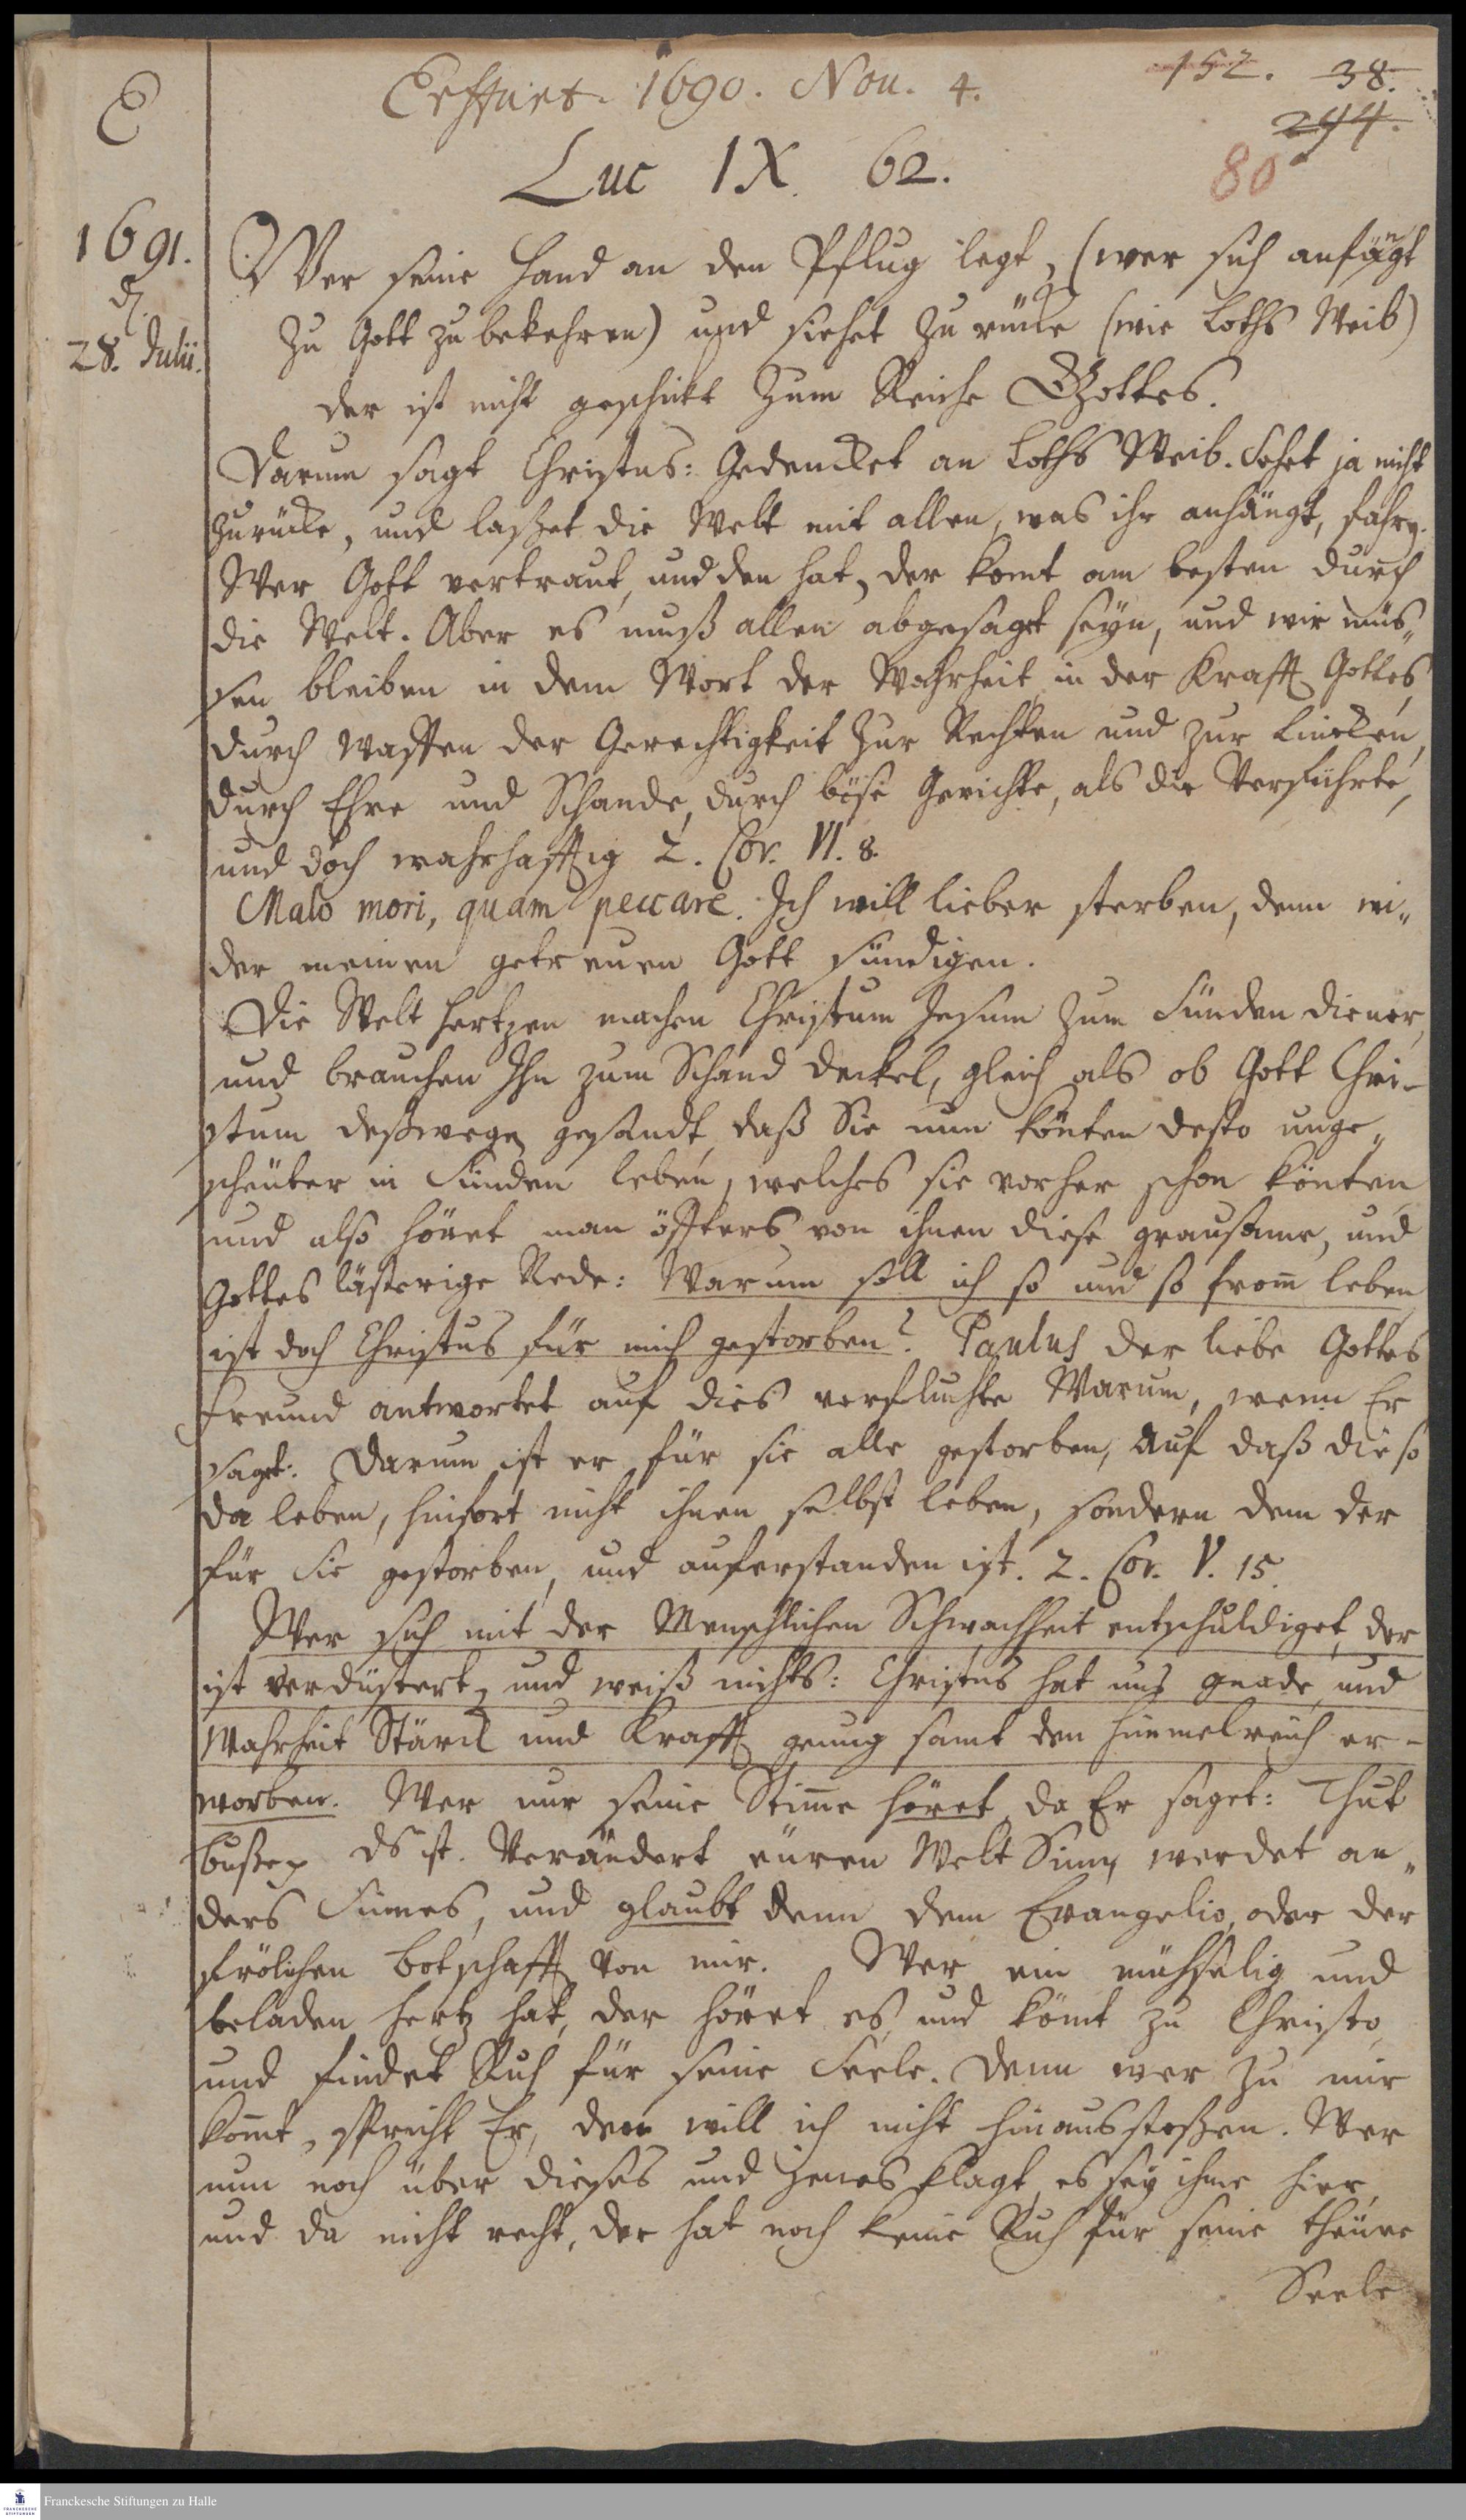 E
Erffurt. 1690. Nov. 4.
152. 38.
244.
80
Luc IX. 62.
1691.
d.
28. Julii.
Wer seine Hand an den Pflug legt, (wer sich anfängt
zu Gott zu bekehren) und siehet zu rücke (wie Loths Weib)
der ist nicht geschickt zum Reiche Gottes.
Darum sagt Christus: Gedencket an Loths Weib. Sehet ja nicht
zurücke, und laßet die Welt mit allen, was ihr anhängt, fahren.
Wer Gott vertraut, und den hat, der komt am besten durch
die Welt. Aber es muß allen abgesagt seyn, und wir müs„
sen bleiben in dem Wort der Wahrheit, in der Krafft Gottes,
durch Waffen der Gerechtigkeit zur Rechten und zur Lincken,
durch Ehre und Schande, durch böse Gerichte, als die Verführte,
und doch wahrhafftig 2. Cor. VI. 8.
Malo mori, quam peccare. Ich will lieber sterben, denn wi„
der meinen getreuen Gott sündigen.
Die Welt hertzen machen Christum Jesum zum Sünden diener,
und brauchen Ihn zum Schand deckel, gleich als ob Gott Chri-
stum deßwegen gesandt, daß Sie nun könten desto unge„
scheuter in Sünden leben, welches sie vorher schon könten,
und also höret man öffters von ihnen diese grausame, und
Gottes lästerige Rede: Warum soll ich so und so from leben,
ist doch Christus für mich gestorben? Paulus der liebe Gottes
freund antwortet auf dies verfluchte Warum, wenn Er
saget: Darum ist er für sie alle gestorben, auf daß die so
da leben, hinfort nicht ihnen selbst leben, sondern dem der
für Sie gestorben, und auferstanden ist. 2. Cor. V. 15.
Wer sich mit der Menschlichen Schwachheit entschuldiget, der
ist verdüstert, und weiß nichts: Christus hat uns gnade, und
Wahrheit Stärck und Krafft genug samt den himmelreich er-
worben. Wer nur seine Stimme höret, da Er saget: Thut
bußep ds ist. Verändert euren Welt Sinn, werdet an„
ders Sinnes, und glaubt denn dem Evangelio, oder der
frölichen botschafft von mir. Wer ein mühselig und
beladen hertz hat, der höret es, und kömt zu Christo,
und findet Ruh für seine Seele. Denn wer zu mir
komt, spricht Er, den will ich nicht hinausstoßen. Wer
nun noch über dieses und jenes klagt, es sey ihme hier
und da nicht recht, der hat noch keine Ruh für seine theure
Seele
Franckesche Stiftungen zu Halle